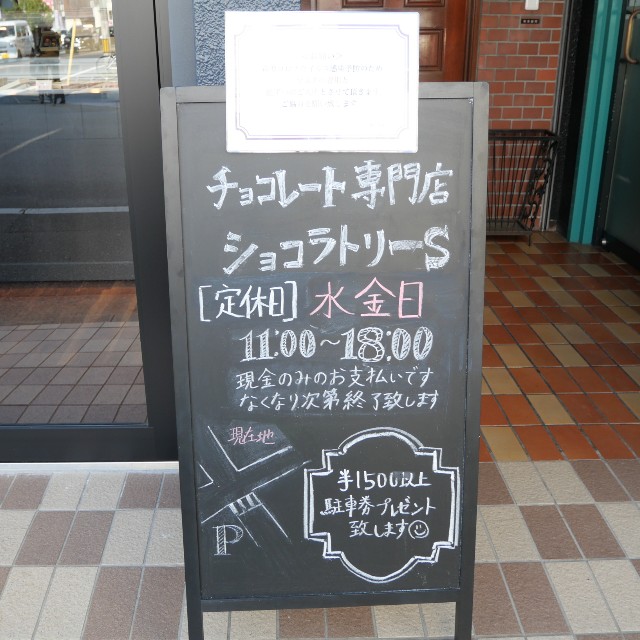 チョコレート専門店
ショコラトリーS
[定休日] 水金日
11:00～18:00
現金のみのお支払いです
なくなり次第終了致します
現在地
P
¥1500以上
駐車券プレゼント
致します☺